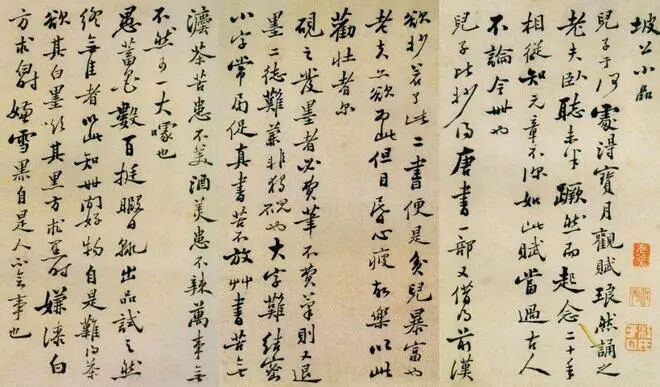 坡公小品
兒子于何處得寶月觀賦琅然誦之
老夫臥聽未半蹶然而起念二十年
相從知元章不深如此賦當過古人
不論今世也
兒子比抄得唐書一部又借得前漢
欲抄若了此二書便是貧兒暴富也
老夫亦欲為此但目昏心疲故樂以此
勸壯者爾
硯之發墨者必費筆不費筆則又退
墨二德難兼非獨硯也大字難結密
小字常局促真書苦不放草書苦無
灋茶苦患不美酒美患不辣萬事無
不然可一大噱也
愚蓄墨數百挺暇日輒出品試之然
終無佳者以此知世間好物自是難得茶
欲其白墨欲其黑方求黑時嫌漆白
方求白時嫌雪黑自是人不會事也